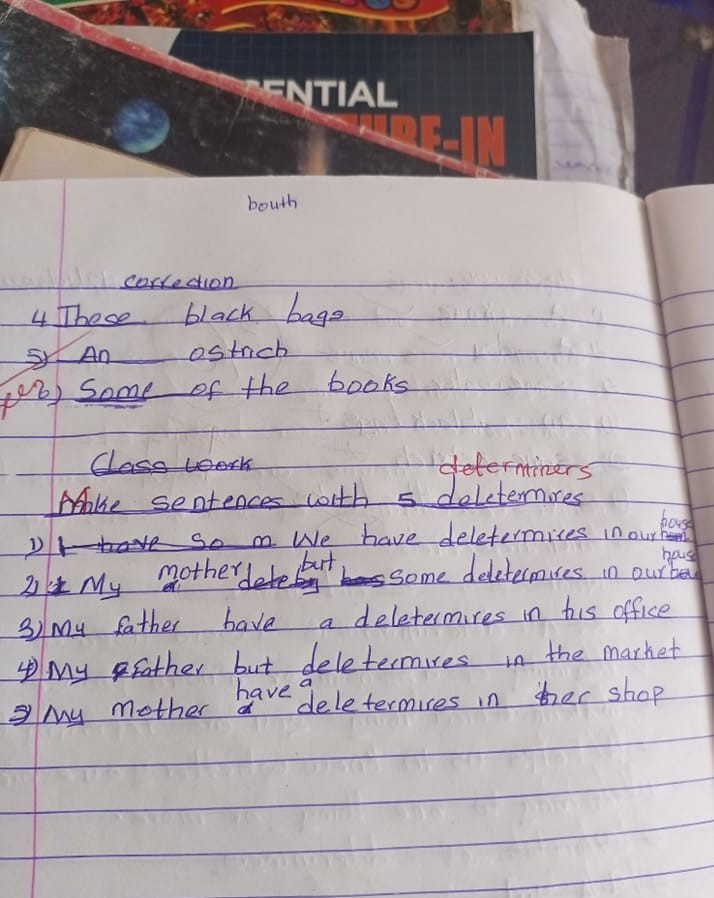 ENTIAL
URE-IN
bouth
correction
4 These black bags
5) An ostrich
6) Some of the books
Class work
determiners
Make sentences with 5 deletermires
1) I have so m We have deletermires in our house
2) My mother but some deletermires in our hous
3) My father have a deletermires in his office
4) My father but deletermires in the market
5) My mother have a deletermires in her shop